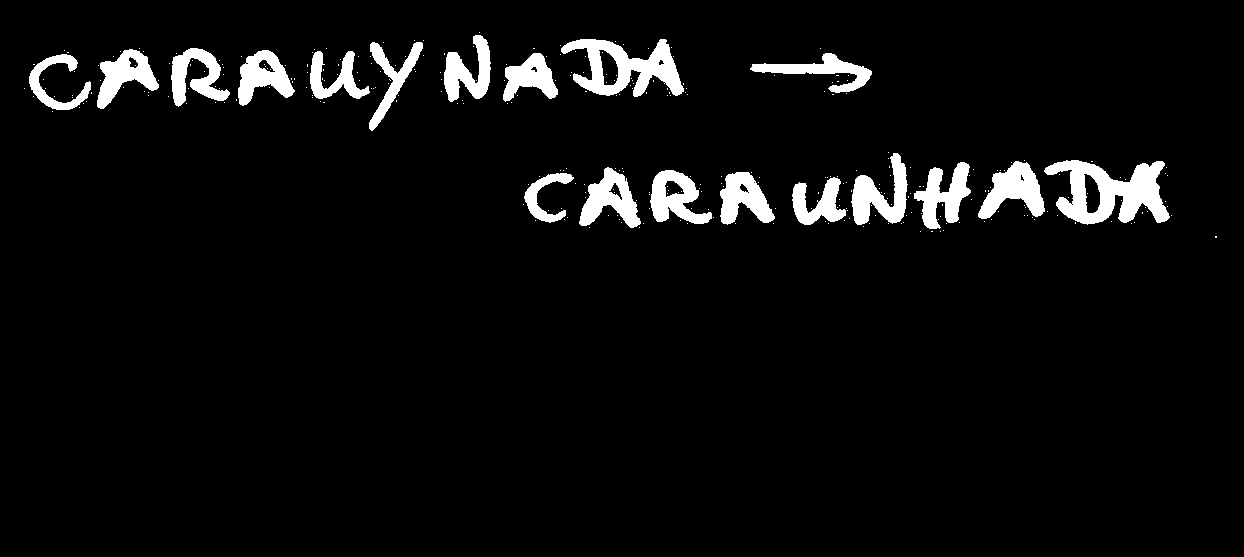 CARAUYNADA →
CARAUNHADA